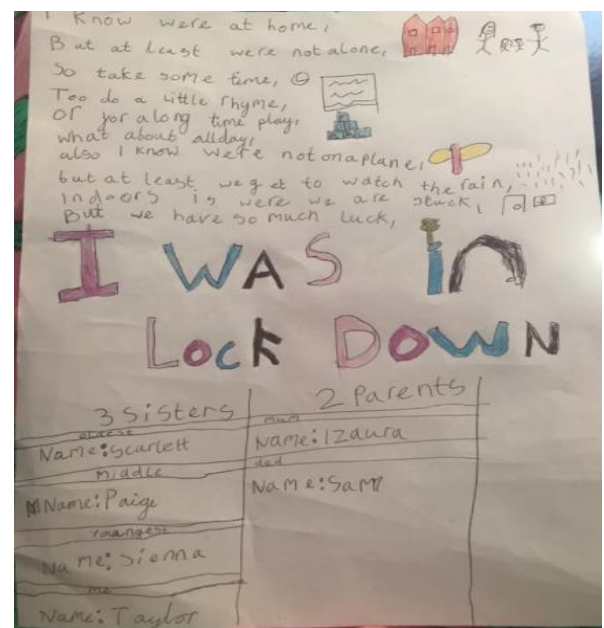 I know were at home,
But at least were not alone,
So take some time,
Too do a little rhyme,
or for along time play,
what about allday,
also I know were not on a plane,
but at least we get to watch the rain,
indoors is were we are stuck,
But we have so much luck,
I WAS in
Lock DOWN
3 Sisters
oldest
Name: Scarlett
middle
Name: Paige
youngest
Name: Sienna
me
Name: Taylor
2 Parents
mum
Name: Izaura
dad
Name: Sam